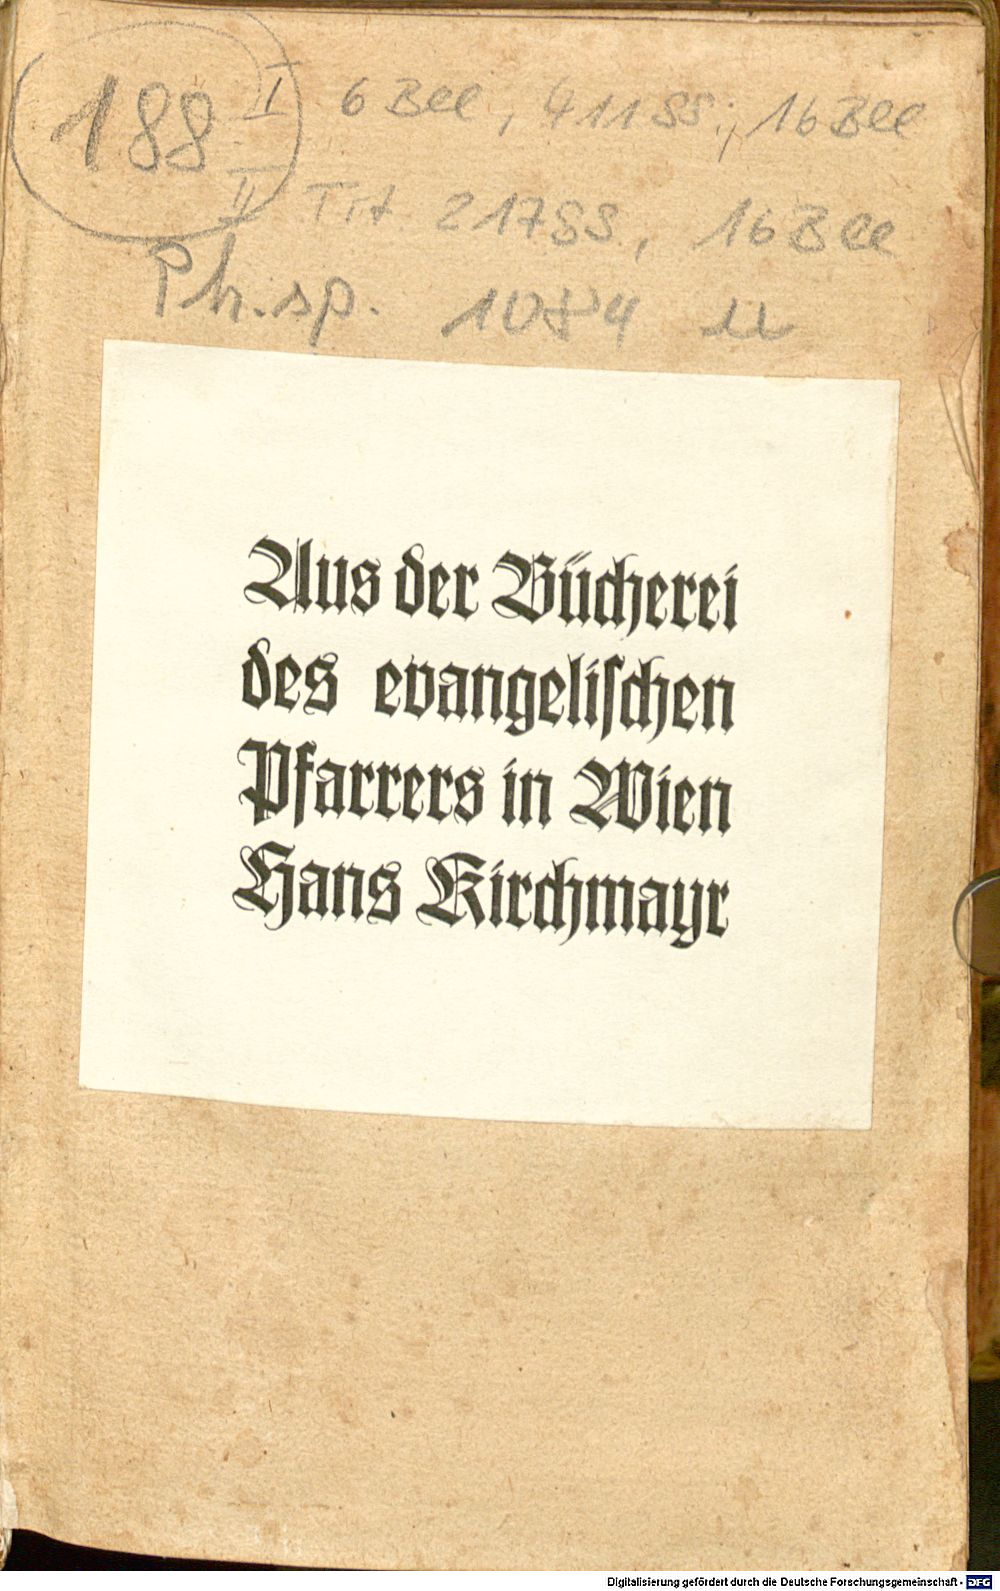 188 I 6 Bll, 411 SS.; 16 Bll
II Tit. 217 SS., 16 Bll
Ph. sp. 1084 u
Aus der Bücherei
des evangeliſchen
Pfarrers in Wien
Hans Kirchmayr
Digitalisierung gefördert durch die Deutsche Forschungsgemeinschaft - DFG